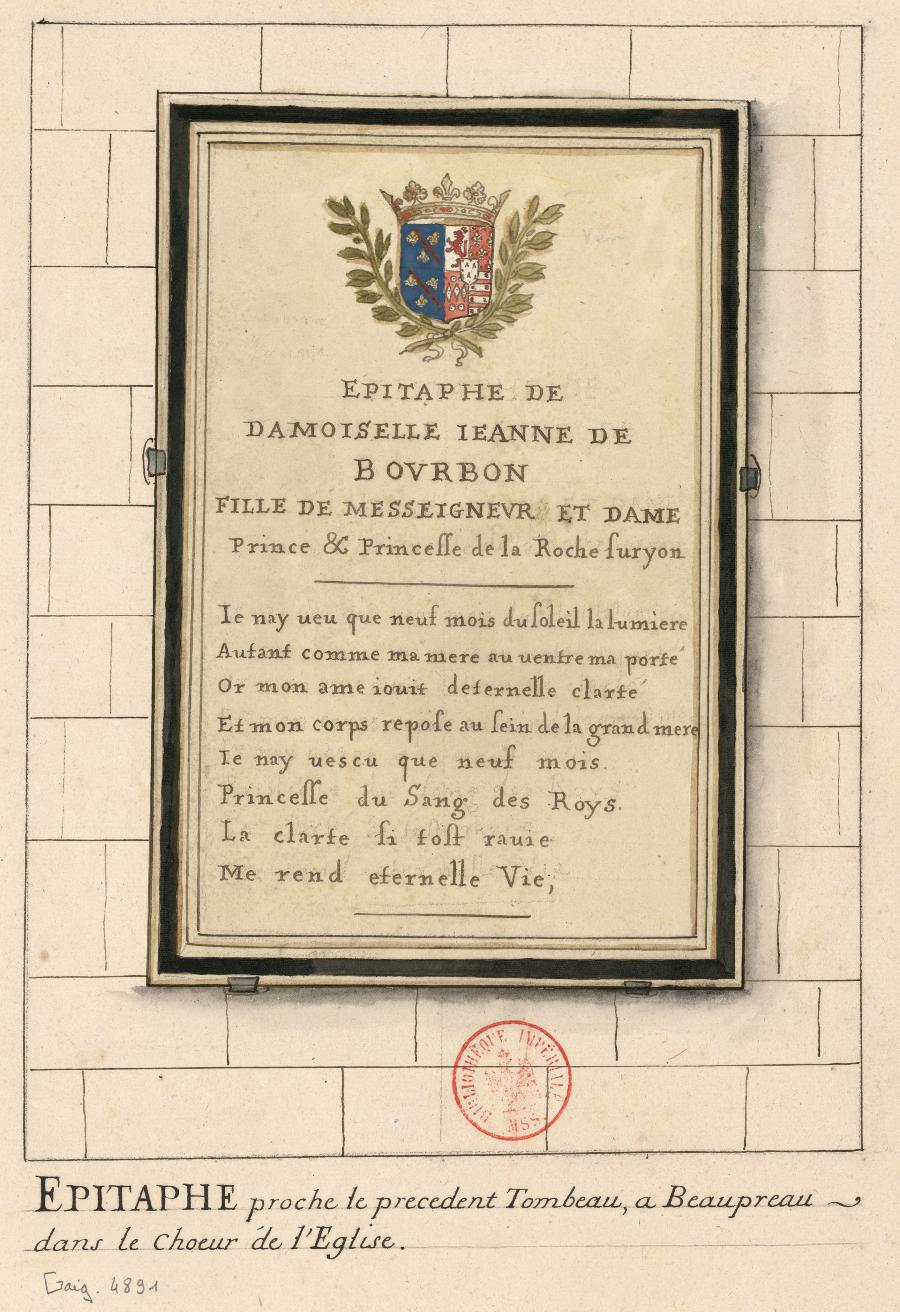 EPITAPHE DE
DAMOISELLE IEANNE DE
BOVRBON
FILLE DE MESSEIGNEVR ET DAME
Prince & Princeſſe de la Roche ſuryon
Ie nay ueu que neuf mois du ſoleil la lumiere
Autant comme ma mere au uentre ma porté
Or mon ame iouit deternelle clarté
Et mon corps repoſe au ſein de la grand mere
Ie nay uescu que neuf mois.
Princeſſe du Sang des Roys.
La clarte ſi toſt rauie
Me rend eternelle Vie;
BIBLIOTHÈQUE IMPÉRIALE
MSS
EPITAPHE proche le precedent Tombeau, a Beaupreau
dans le Choeur de l'Eglise.
Gaig. 4891